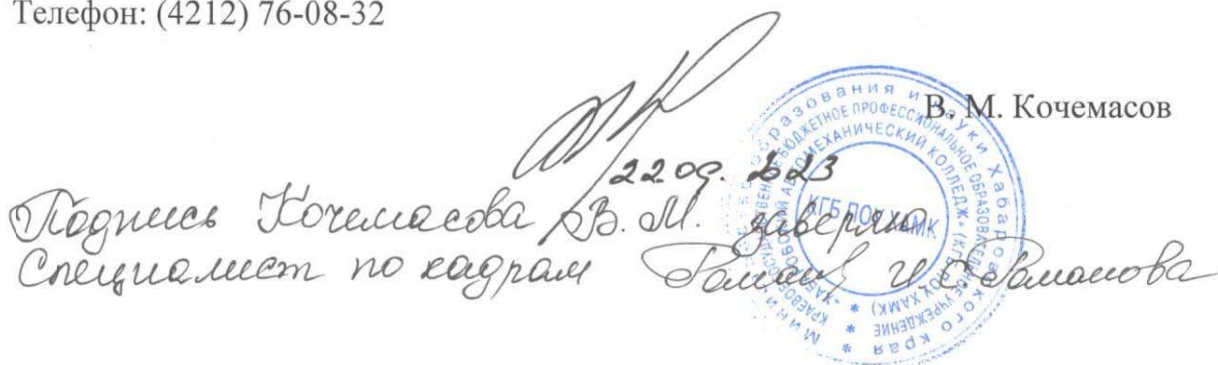 Телефон: (4212) 76-08-32
В. М. Кочемасов
22.09.2023
Подпись Кочемасова В. М. заверяю
Специалист по кадрам И.С. Романова
Министерство образования и науки Хабаровского края
КРАЕВОЕ ГОСУДАРСТВЕННОЕ БЮДЖЕТНОЕ ПРОФЕССИОНАЛЬНОЕ ОБРАЗОВАТЕЛЬНОЕ УЧРЕЖДЕНИЕ
АВТОМЕХАНИЧЕСКИЙ КОЛЛЕДЖ» (КГБ ПОУ ХАМК)
КГБ ПОУ ХАМК